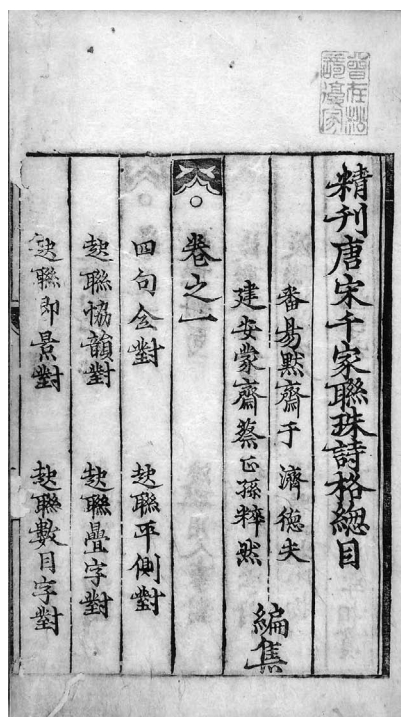 精刊唐宋千家聯珠詩格總目
番昜默齋于濟德夫
建安蒙齋蔡正孫粹然
編集
卷之一
四句全對 起聯平側對
起聯協韻對 起聯疊字對
起聯即景對 起聯數目字對